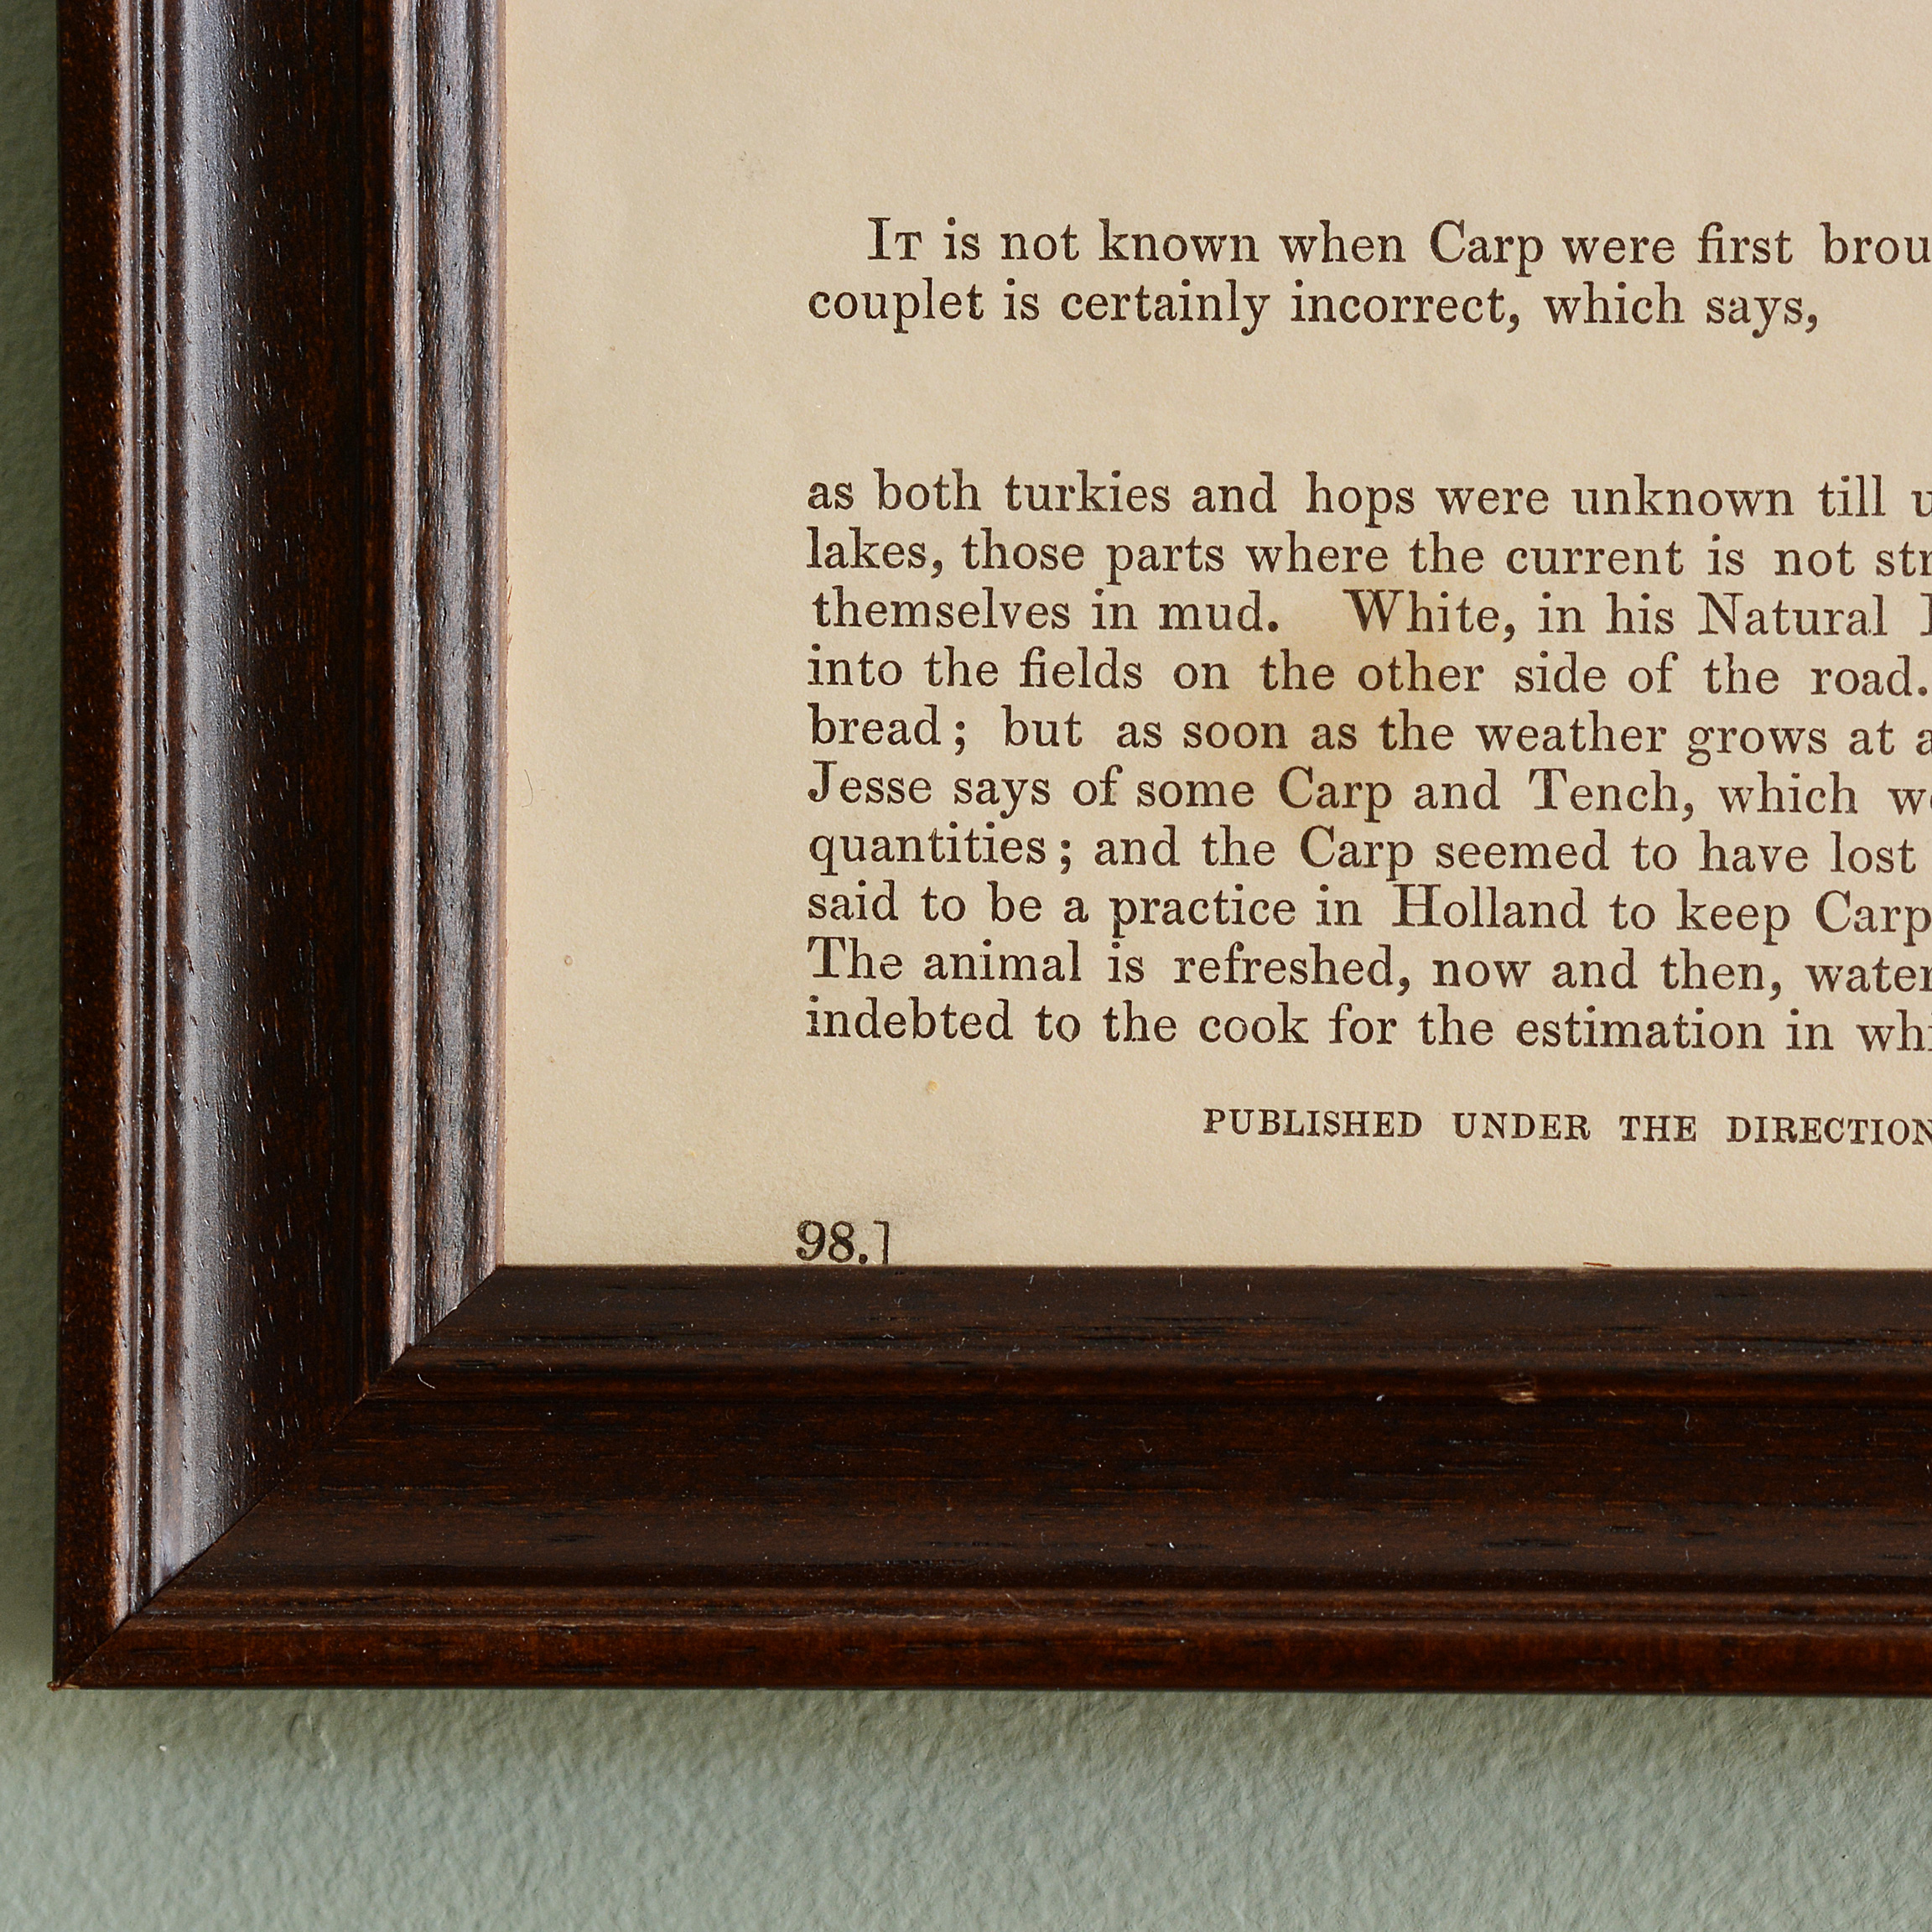 It is not known when Carp were first brou
couplet is certainly incorrect, which says,
as both turkies and hops were unknown till u
lakes, those parts where the current is not str
themselves in mud. White, in his Natural
into the fields on the other side of the road.
bread; but as soon as the weather grows at a
Jesse says of some Carp and Tench, which we
quantities; and the Carp seemed to have lost
said to be a practice in Holland to keep Carp
The animal is refreshed, now and then, water
indebted to the cook for the estimation in whi
PUBLISHED UNDER THE DIRECTION
98.]